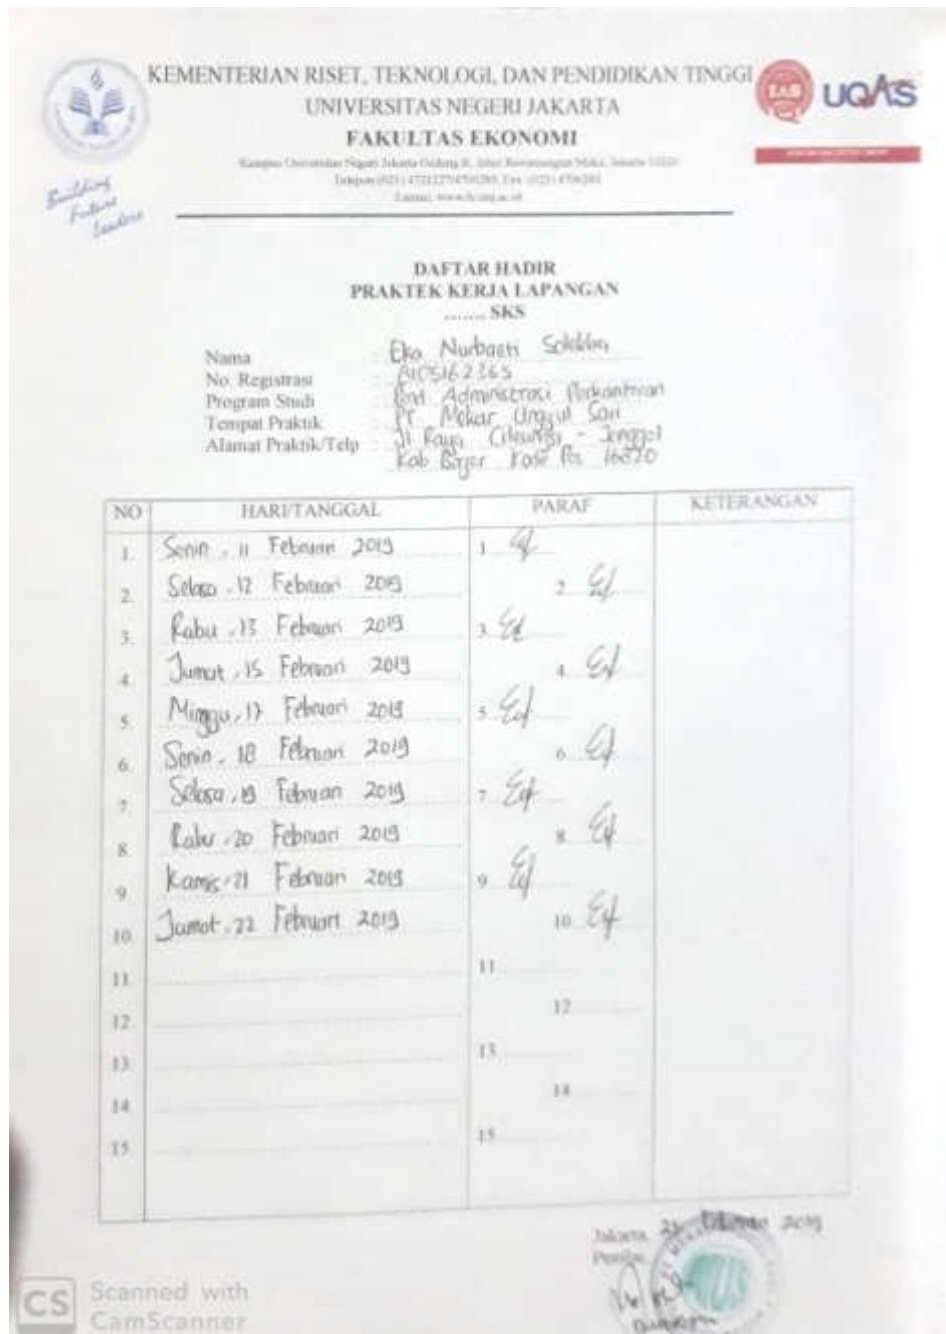 KEMENTERIAN RISET, TEKNOLOGI, DAN PENDIDIKAN TINGGI
UNIVERSITAS NEGERI JAKARTA
FAKULTAS EKONOMI
Kampus Universitas Negeri Jakarta Gedung R, Jalan Rawamangun Muka, Jakarta
Building
Future
Leaders
IAS UQAS
DAFTAR HADIR
PRAKTEK KERJA LAPANGAN
....... SKS
Nama : Eka Nurbaeti
No. Registrasi : 8105162365
Program Studi : Pend Administrasi Perkantoran
Tempat Praktik : PT. Mekar Unggul Sari
Alamat Praktik/Telp : Jl Raya Cileungsi - Jonggol
Kab Bogor Kode Pos 16820
NO HARI/TANGGAL PARAF KETERANGAN
1. Senin, 11 Februari 2019 1
2. Selasa, 12 Februari 2019 2
3. Rabu, 13 Februari 2019 3
4. Jumat, 15 Februari 2019 4
5. Minggu, 17 Februari 2019 5
6. Senin, 18 Februari 2019 6
7. Selasa, 19 Februari 2019 7
8. Rabu, 20 Februari 2019 8
9. Kamis, 21 Februari 2019 9
10. Jumat, 22 Februari 2019 10
11. 11
12. 12
13. 13
14. 14
15. 15
Jakarta, Februari 2019
CS Scanned with
CamScanner